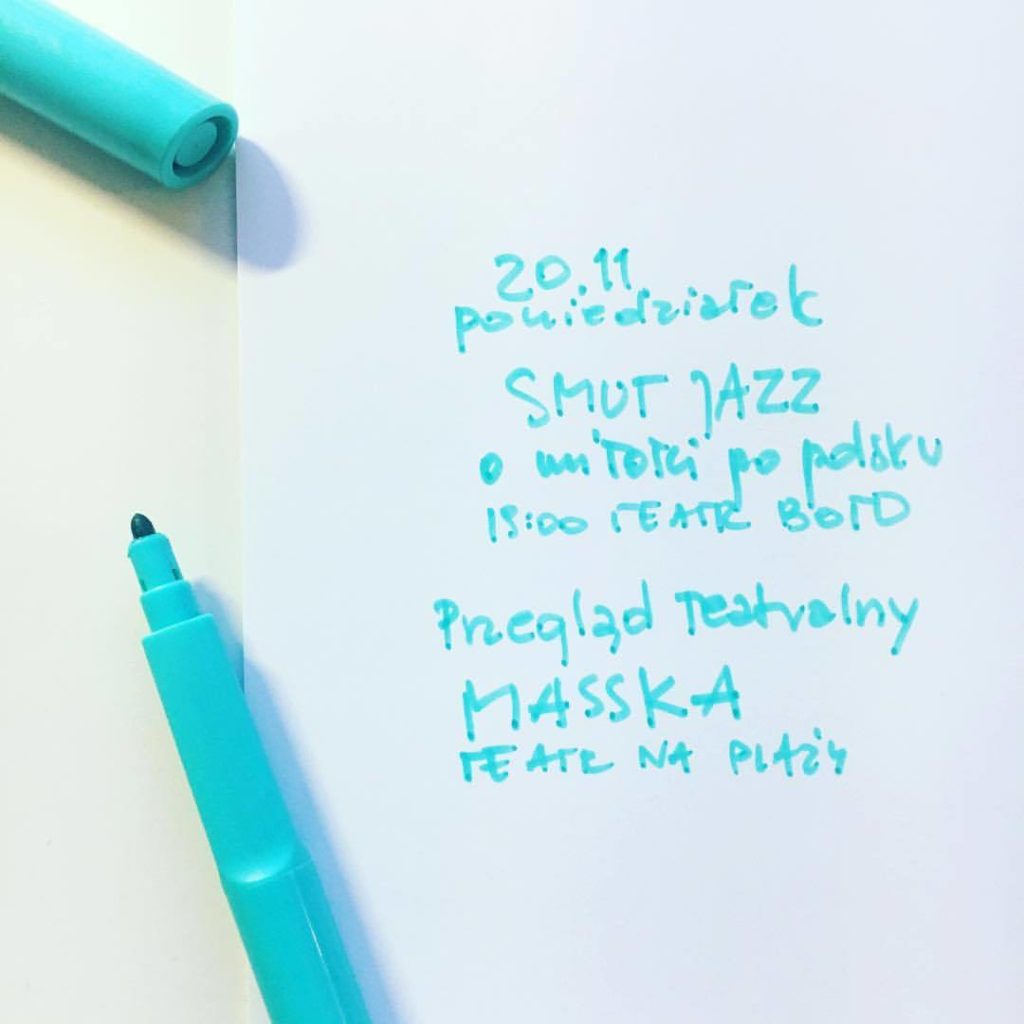 20.11
poniedziałek
SMUT JAZZ
o miłości po polsku
19:00 TEATR BOTO
Przegląd teatralny
MASSKA
TEATR NA PLAŻY